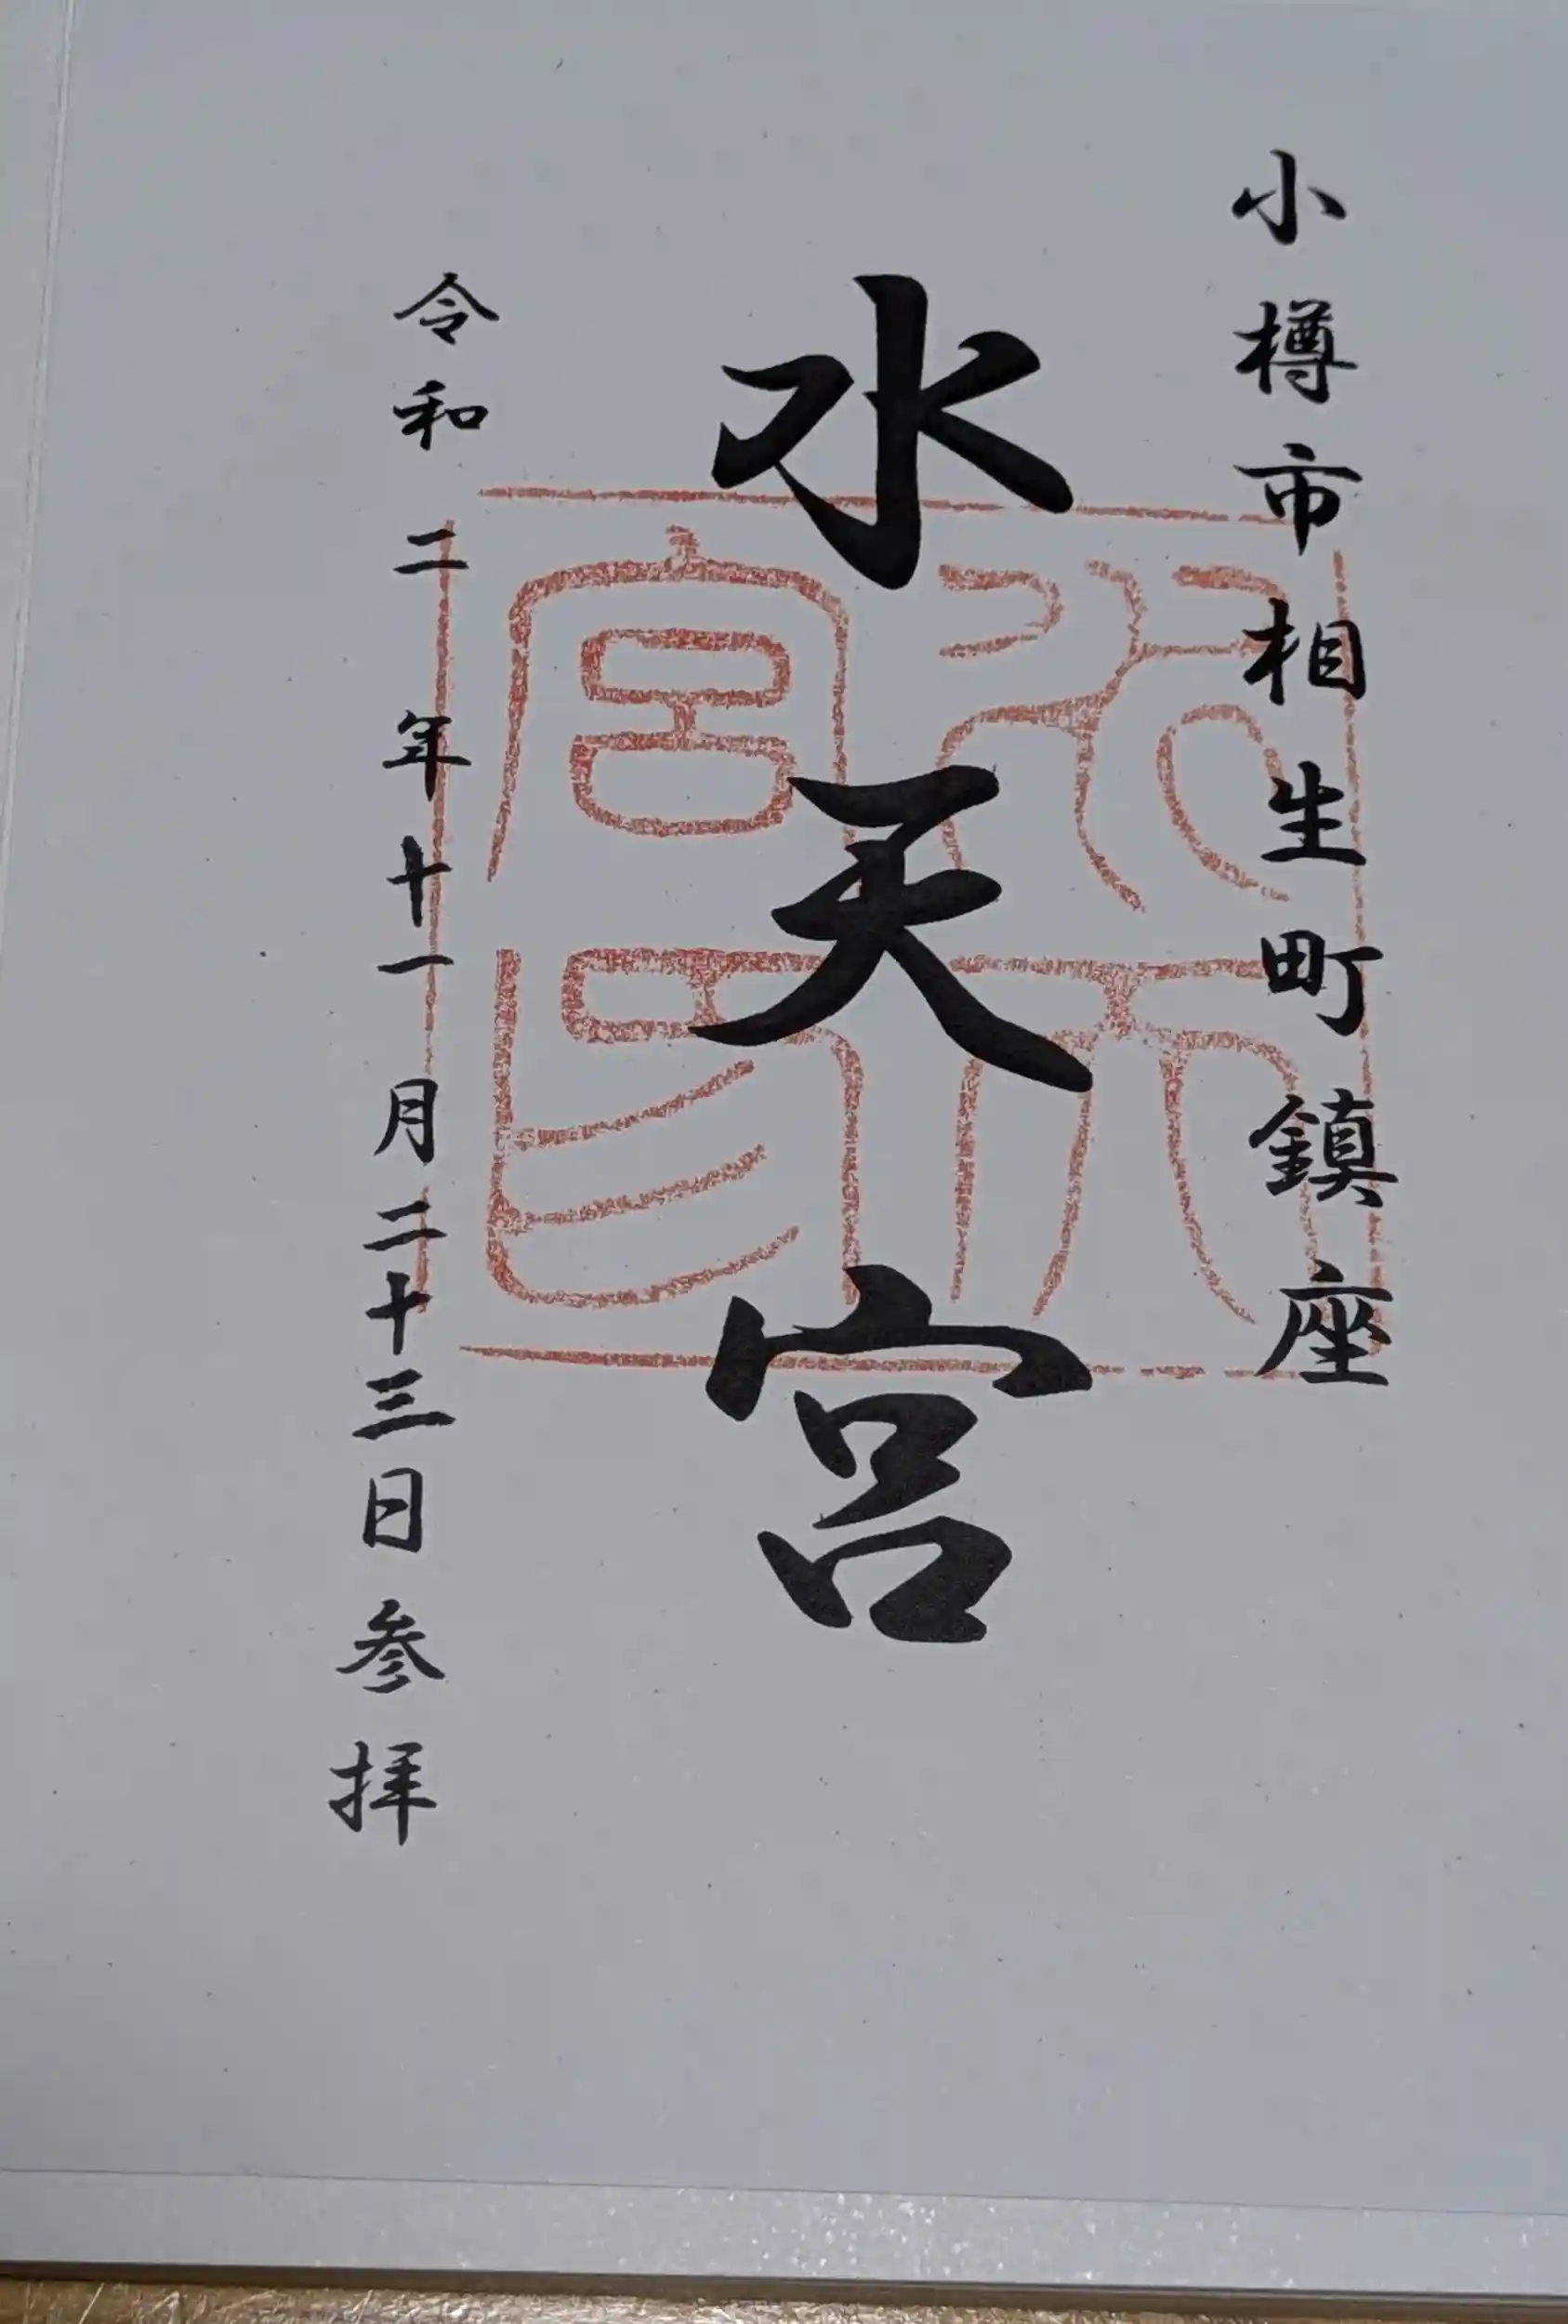 小樽市相生町鎮座
水天宮
令和二年十一月二十三日参拝